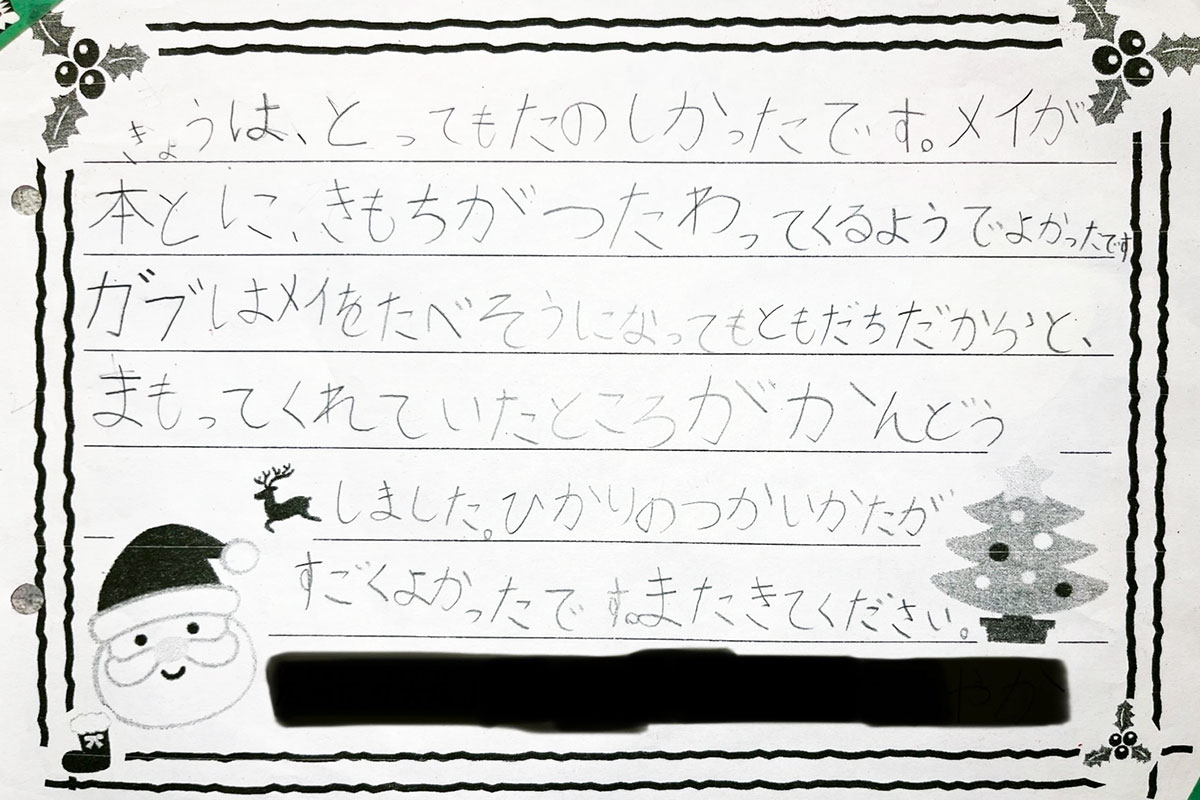 きょうは、とってもたのしかったです。メイが
本とに、きもちがつたわってくるようでよかったです
ガブしはメイをたべそうになってもともだちだからと、
まもってくれていたところがかんどう
しました。ひかりのつかいかたが
すごくよかったです。またきてください。